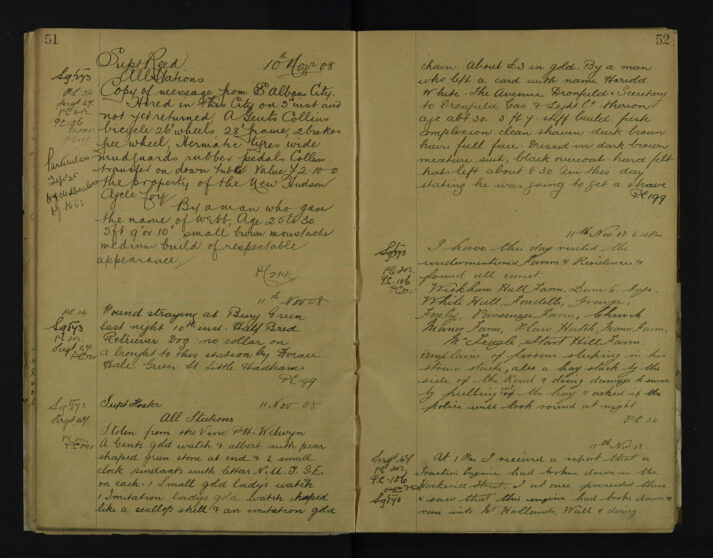 51
Supt Reed 10th Nov 08
All Stations
Copy of message from St Albans City
Hired in this City on 3rd inst and
not yet returned, A Gents Collins
bicycle 26 wheels, 28 frame, 2 brakes
free wheel, Hermatic tyres wide
mudguards rubber pedals Collins
transfer on down tube Value £2-10-0
the property of the New Hudson
Cycle Coy
By a man who gave
the name of Webb, Age 25 to 30
5ft 9 or 10" small brown moustache
medium build of respectable
appearance
PC 214
Sgt 93
PC 24
Sergt 64
PC 202
PC 106
Particulars
11th Nov 08
Found straying at Bury Green
last night 10th inst. Half Bred
Retriever Dog no collar on
brought to this station by Horace
Hale Green St Little Hadham
PC 199
PC 24
Sgt 93
PC 202
Sergt 64
Supt Foster 11 Nov 08
All Stations
Stolen from the Vine P.H. Welwyn
A Gents gold watch & albert with pear
shaped green stone at end & 2 small
clock pendants with letters N.U.T.G.E
on each. 1 Small gold lady's watch
1 Imitation lady's gold watch shaped
like a scallop shell & an imitation gold
Sgt 93
Sergt 64
PC 202
52
chain. About £3 in gold. By a man
who left a card with name Harold
White. The Avenue Dronfield & Secretary
to Dronfield Gas & Light Co thereon
age abt 30. 5 ft 7 stiff build, fresh
complexion clean shaven dark brown
hair full face Dressed in dark brown
mixture suit, black overcoat hard felt
hat left about 8 30 Am this day
stating he was going to get a shave
PC 199
11th Nov 08.
I have this day visited the
undermentioned Farms & Residence &
found all correct
Wickham Hall Farm,
White Hall
Foxly, Parsonage Farm, Church
Manor Farm, Plaw Hatch Manor Farm,
Mr Liggle Start Hill Farm
complains of persons sleeping in his
straw stack, also a hay stack by the
side of the Road & doing damage to same
by pulling out the hay & asked if the
police will look round at night
PC 24
Sgt 93
PC 202
PC 106
11th Nov 08
At 1 Pm I received a report that a
Traction Engine had broken down in the
Hockerill Street, I at once proceeded there
& saw that the engine had broke down &
ran into Mr Hollands, Wall & doing
Sergt 64
PC 202
PC 106
Sgt 93